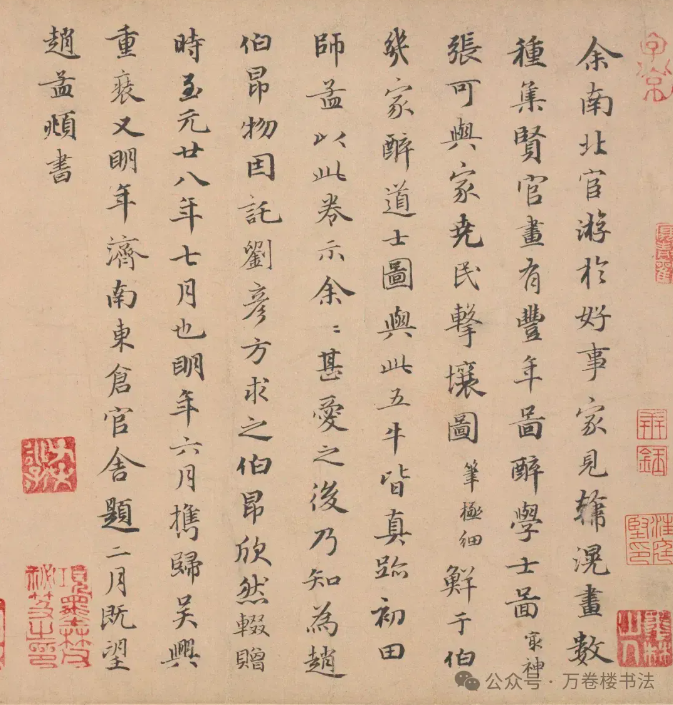 余南北官游於好事家見韓滉畫數
種集賢官畫有豐年啚醉學士啚冣神
張可與家堯民擊壤圖筆極細鮮于伯
幾家醉道士圖與此五牛皆真跡初田
師孟以此卷示余〻甚愛之後乃知為趙
伯昂物因託劉彦方求之伯昂欣然輟贈
時至元廿八年七月也明年六月攜歸吴興
重裝又明年濟南東倉官舍題二月既望
趙孟頫書
子京
墨林山人
項墨林父祕笈之印
公众号 · 万卷楼书法